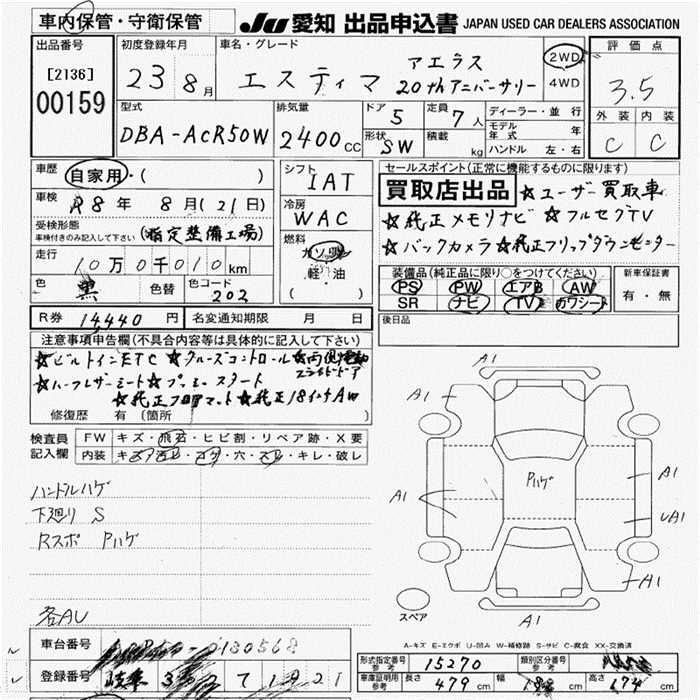 車内保管・守衛保管
JU 愛知 出品申込書 JAPAN USED CAR DEALERS ASSOCIATION
出品番号
[2136]
00159
初度登録年月
23 8月
車名・グレード
アエラス
エスティマ 20thアニバーサリー
2WD
4WD
評価点
3.5
外装 内装
C C
型式
DBA-ACR50W
排気量
2400cc
ドア 5
定員 7人
形状 SW
積載 kg
ディーラー・並行
モデル年式 年
ハンドル 左・右
車歴
自家用・( )
車検
R8年 8月(21日)
受検形態
車検付きのみ記入して下さい (指定整備工場)
走行
10万0千010km
色 黒 色替 色コード 202
シフト
IAT
冷房
WAC
燃料
ガソリン
軽・油
( )
セールスポイント(正常に機能するものに限ります)
買取店出品 ☆ユーザー買取車
☆純正メモリナビ ☆フルセグTV
☆バックカメラ ☆純正フリップダウンモニター
装備品(純正品に限り○をつけてください)
PS PW エアB AW
SR ナビ TV カワシート
新車保証書
有・無
R券 14,440円 名変通知期限 月 日
後日品
注意事項申告欄(不具合内容等は具体的に記入して下さい)
☆ビルトインETC ☆クルーズコントロール ☆両側電動スライドドア
☆ハーフレザーシート ☆プッシュスタート
☆純正フロアマット ☆純正18インチAW
修復歴 有(箇所 )
検査員記入欄
FW キズ・飛石・ヒビ割・リペア跡・X要
内装 キズ・汚レ・コゲ・穴・スレ・キレ・破レ
ハンドルハゲ
下廻り S
Rスポ Pハゲ
各AU
A1
A1
A1
Pハゲ
A1
A1
UA1
A1
A1
スペア
A-キズ E-エクボ U-凹み W-補修跡 S-サビ C-腐食 XX-交換済
車台番号 0130568
登録番号
形式指定番号参考 15270
類別区分番号参考
車庫証明用参考 長さ 479cm 幅 180cm 高さ 174cm